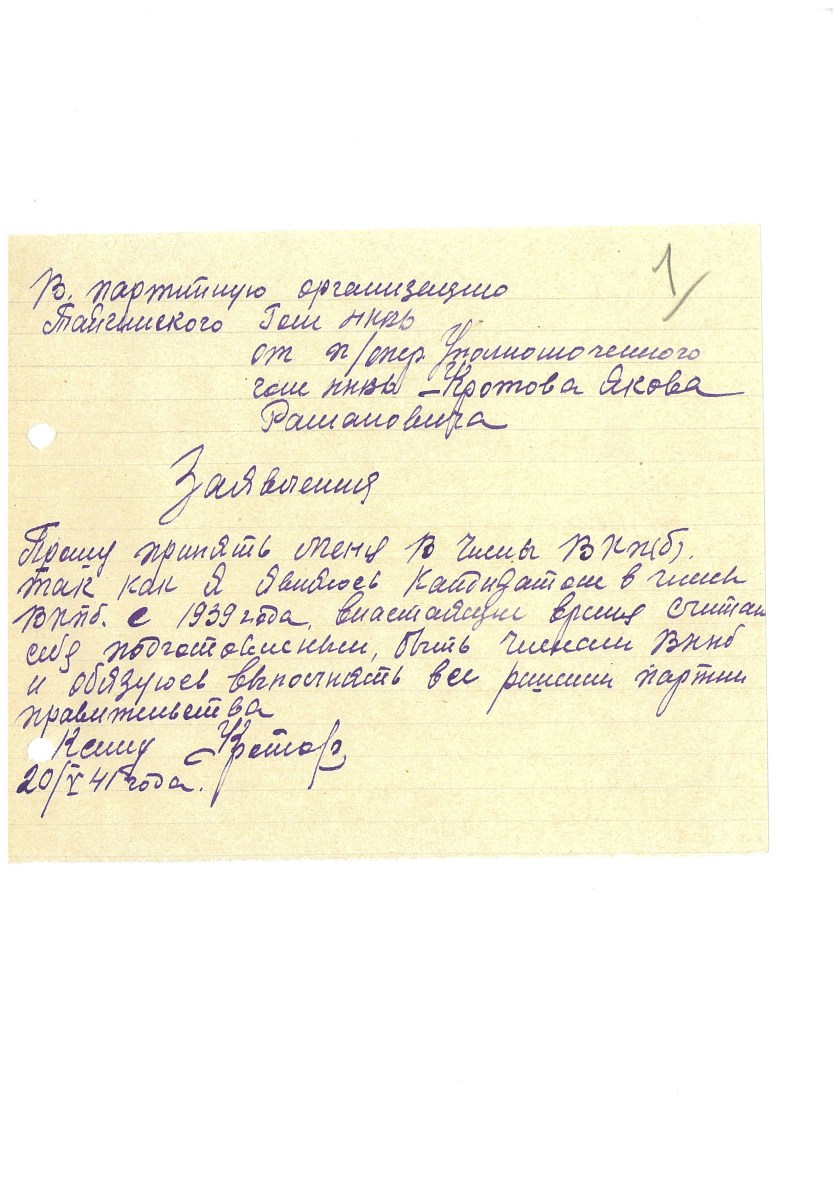 1/
В. партитную организацию
Тайгинского Гом нквд
от п/опер Уполномоченного
гом нквд – Кротова Якова
Рамановича
Заявления
Прошу принять меня в члены ВКП(б).
так как я являюсь кандидатом в члены
ВКПб. с 1939 года, внастаящие время считаю
себя подготовленным, быть членам ВКПб
и обязуюсь выполнять все решении партии
правительства
Ксиму Кротов
20/V 41 года.